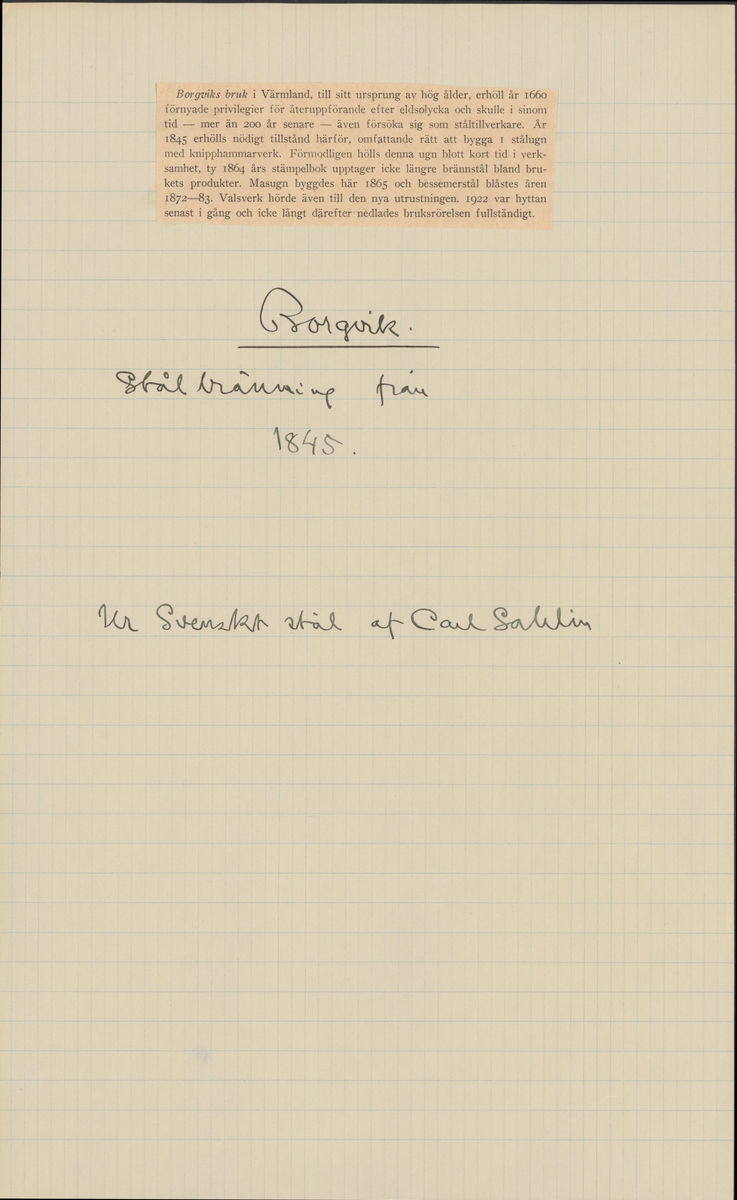 Borgviks bruk i Värmland, till sitt ursprung av hög ålder, erhöll år 1660
förnyade privilegier för återuppförande efter eldsolycka och skulle i sinom
tid — mer än 200 år senare — även försöka sig som ståltillverkare. År
1845 erhölls nödigt tillstånd härför, omfattande rätt att bygga 1 stålugn
med knipphammarverk. Förmodligen hölls denna ugn blott kort tid i verk-
samhet, ty 1864 års stämpelbok upptager icke längre brännstål bland bru-
kets produkter. Masugn byggdes här 1865 och bessemerstål blåstes åren
1872—83. Valsverk hörde även till den nya utrustningen. 1922 var hyttan
senast i gång och icke långt därefter nedlades bruksrörelsen fullständigt.
Borgvik.
Stålbränning från
1845.
Ur Svenskt stål af Carl Sahlin